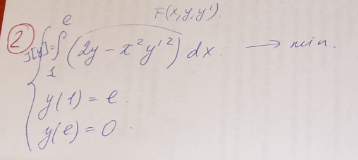 F(x,y,y').
② J[y]=∫₁ᵉ (2y - x²y'²) dx → min.
y(1) = e.
y(e) = 0